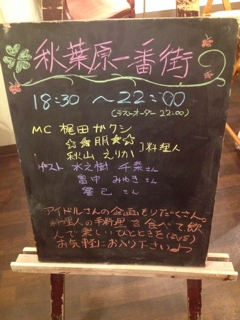 秋葉原一番街
18:30 ～22:00
(ラストオーダー 22:00)
MC 梶田ガクシ
☆★朋★☆
秋山えりか 】料理人
ゲスト 水之樹 千菜さん
畠中 みゆきさん
さん
アイドルさんの企画もりだくさん。
料理人の手料理を食べて飲
んで楽しいひとときを
お気軽にお入り下さい♪